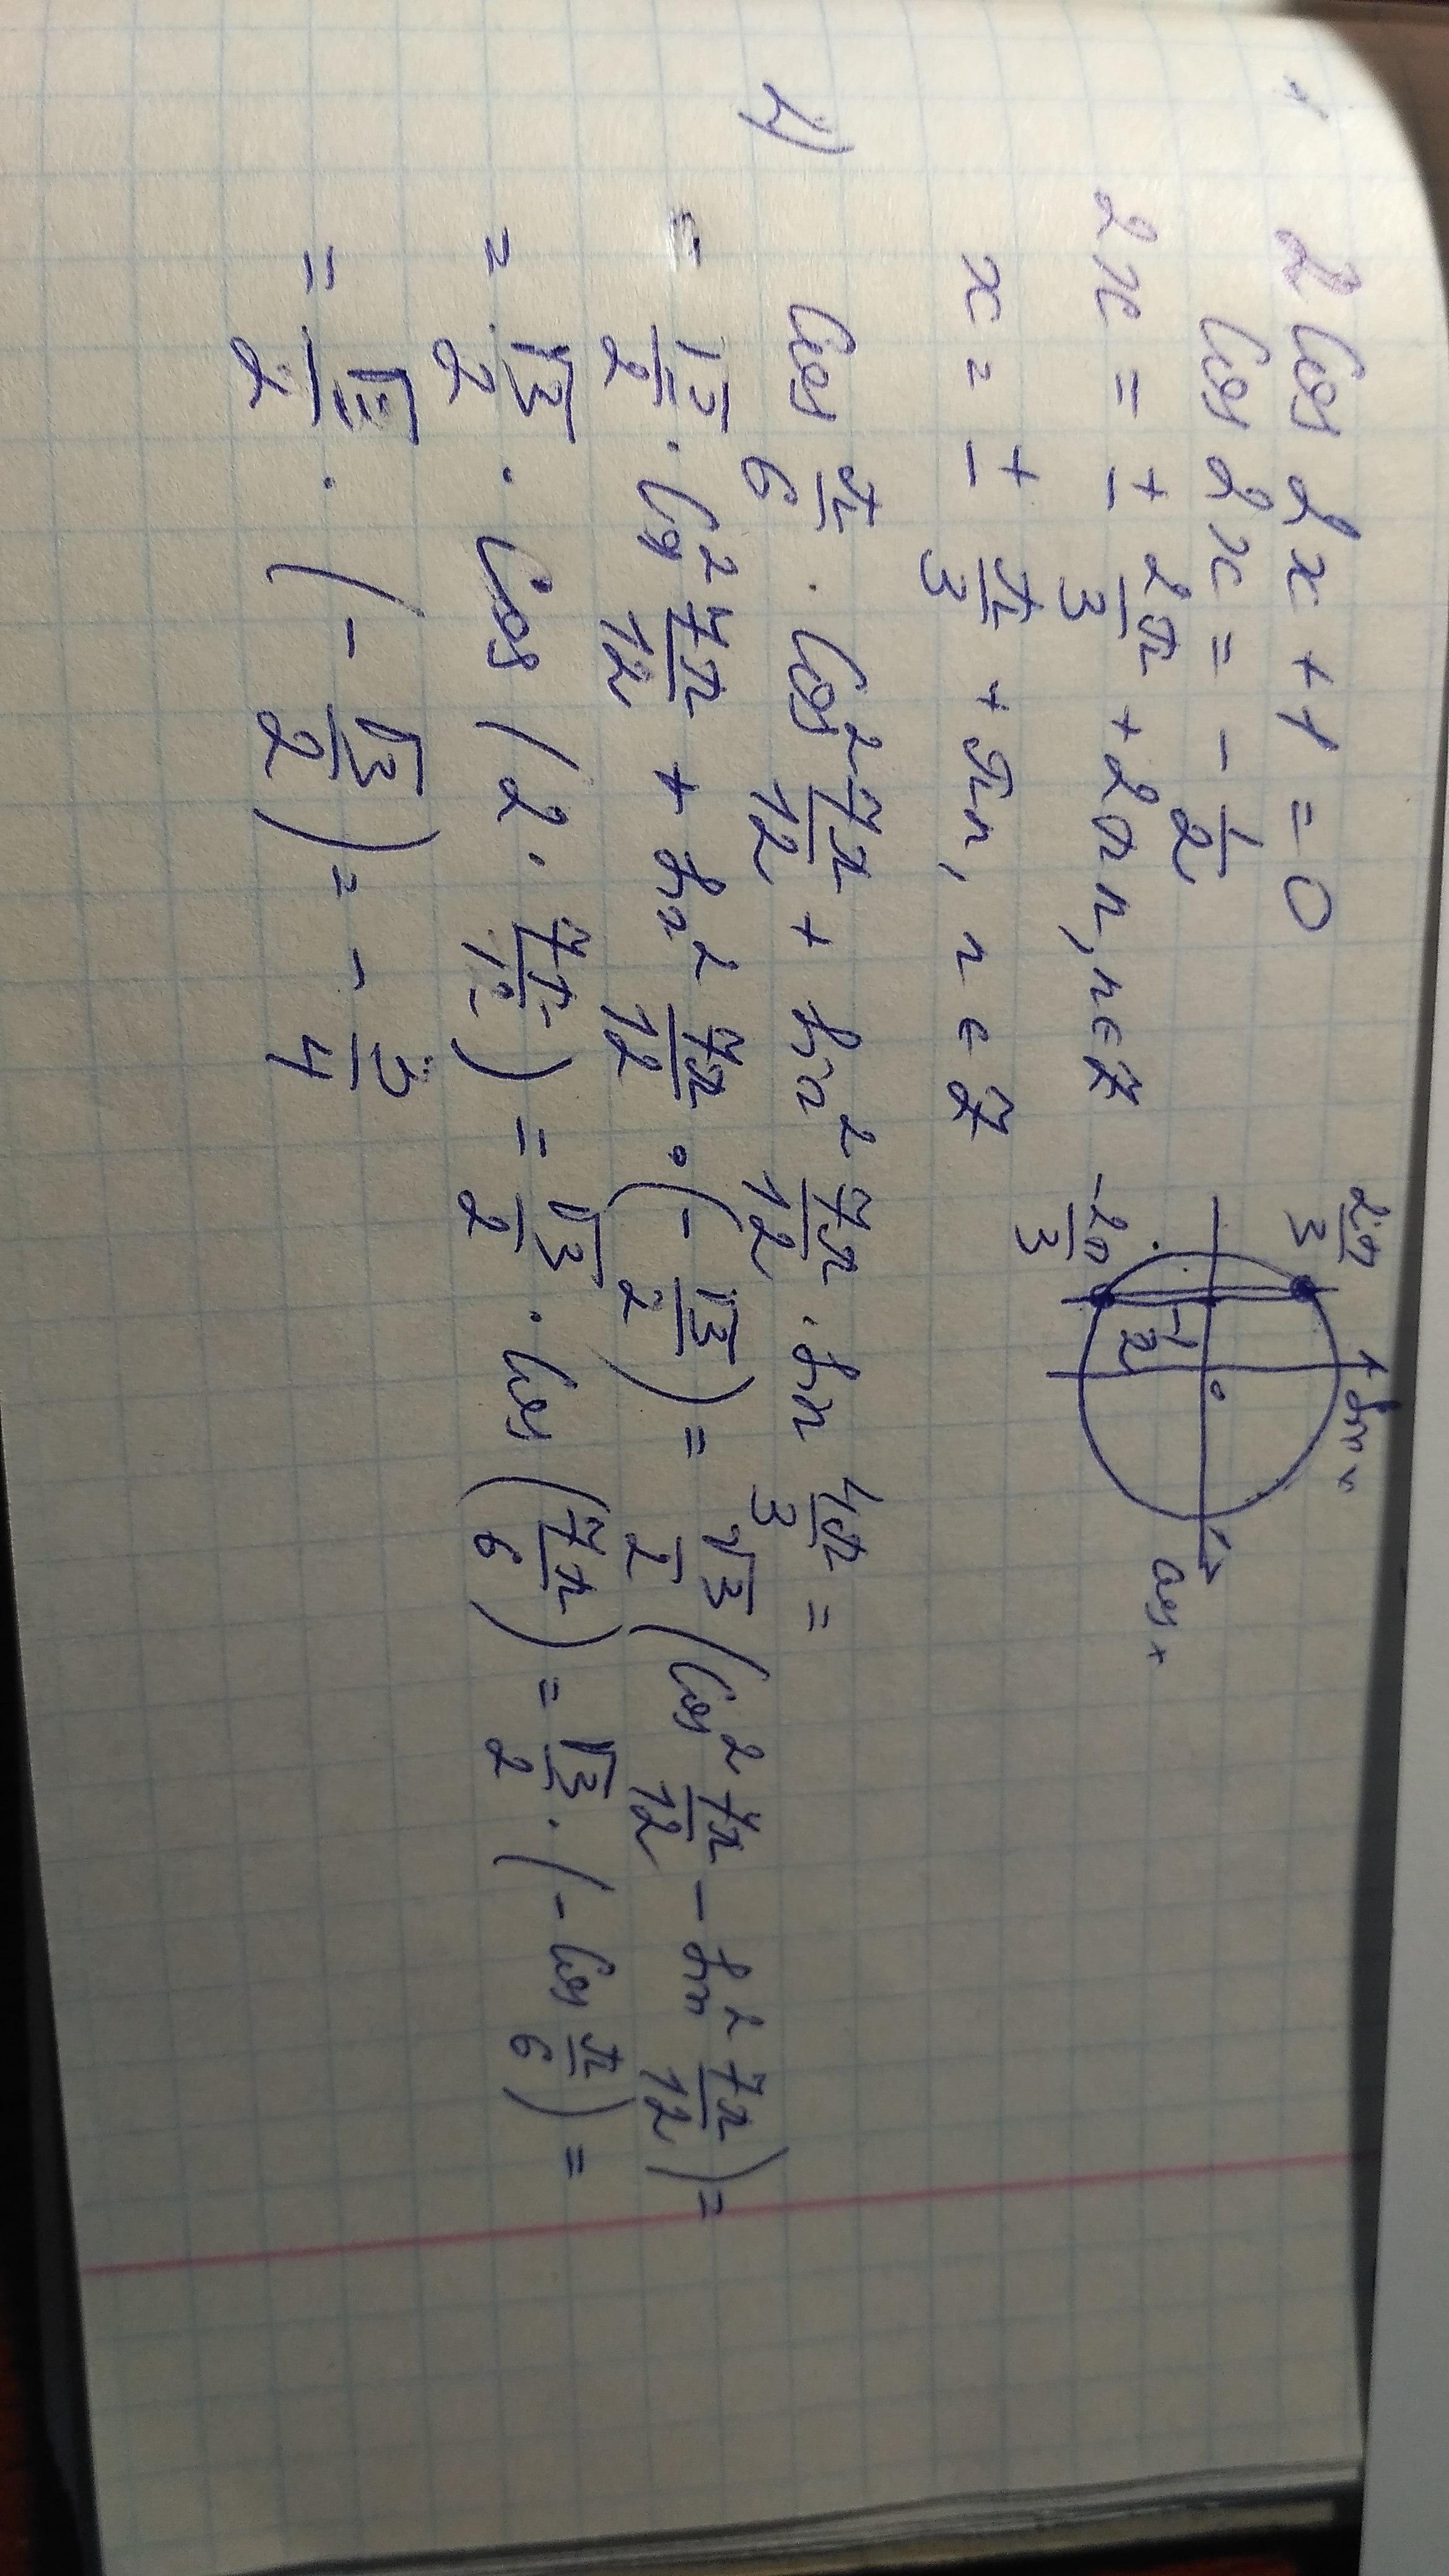 2 cos 2x + 1 = 0
cos 2x = - 1/2
2x = ± 2π/3 + 2πn, n ∈ Z
x = ± π/3 + πn, n ∈ Z
2π/3
-2π/3
-1/2
0
sin x
cos x
4) cos π/6 · cos² 7π/12 + sin² 7π/12 · sin 4π/3 =
= √3/2 · cos² 7π/12 + sin² 7π/12 · (- √3/2) = √3/2 (cos² 7π/12 - sin² 7π/12) =
= √3/2 · cos (2 · 7π/12) = √3/2 · cos (7π/6) = √3/2 · (- cos π/6) =
= √3/2 · (- √3/2) = - 3/4